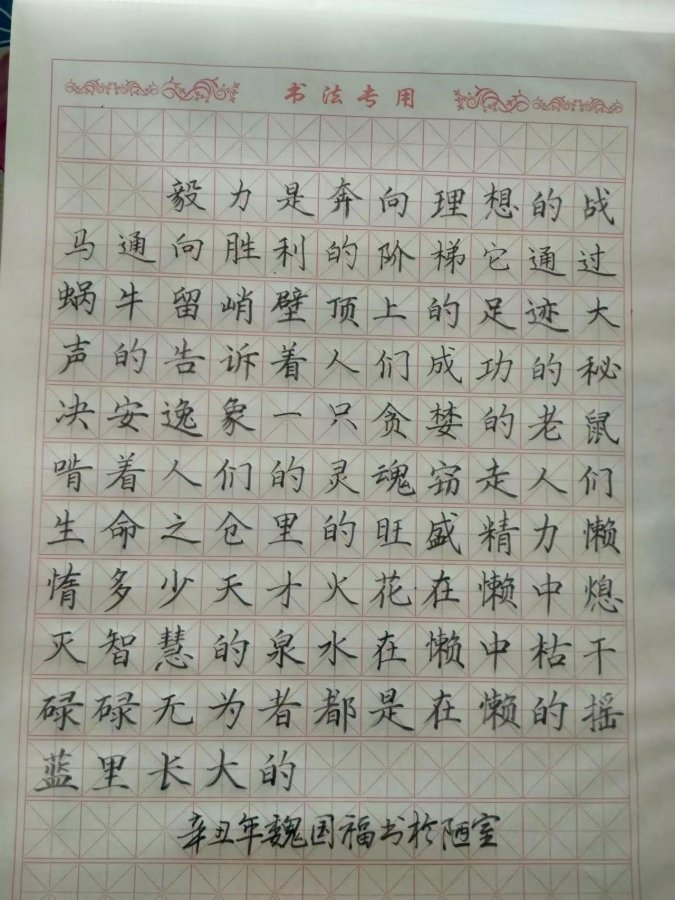 书法专用
毅力是奔向理想的战
马通向胜利的阶梯它通过
蜗牛留峭壁顶上的足迹大
声的告诉着人们成功的秘
决安逸象一只贪婪的老鼠
啃着人们的灵魂窃走人们
生命之仓里的旺盛精力懒
惰多少天才火花在懒中熄
灭智慧的泉水在懒中枯干
碌碌无为者都是在懒的摇
蓝里长大的
辛丑年魏国福书于陋室